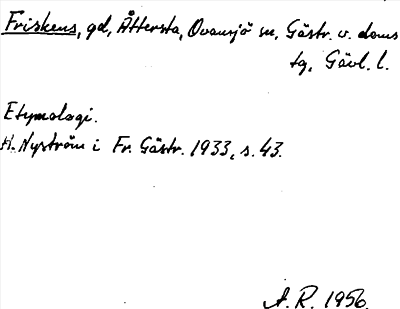 Friskens, gd, Åttersta, Ovansjö sn, Gästr. v. doms
tg, Gävl. l.
Etymologi.
H. Nyström i Fr. Gästr. 1933, s. 43.
A. R. 1956.